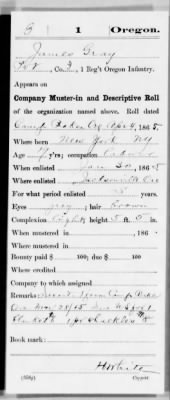 G 1 Oregon.
James Gray
Pvt, Co. , 1 Reg't Oregon Infantry.
Appears on
Company Muster-in and Descriptive Roll
of the organization named above. Roll dated
Camp Baker Ogn Apr 4, 186 5.
Where born New York NY
Age y'rs; occupation
When enlisted Jan 30, 186 5
Where enlisted Jacksonville Ore
For what period enlisted years.
Eyes gray; hair Brown
Complexion light; height 5 ft. 5 in.
When mustered in , 186 .
Where mustered in
Bounty paid $ 100; due $ 100
Where credited
Company to which assigned
Remarks: Camp Baker
Blanket 1 pr shackles
Book mark:
(339g) Copyist.